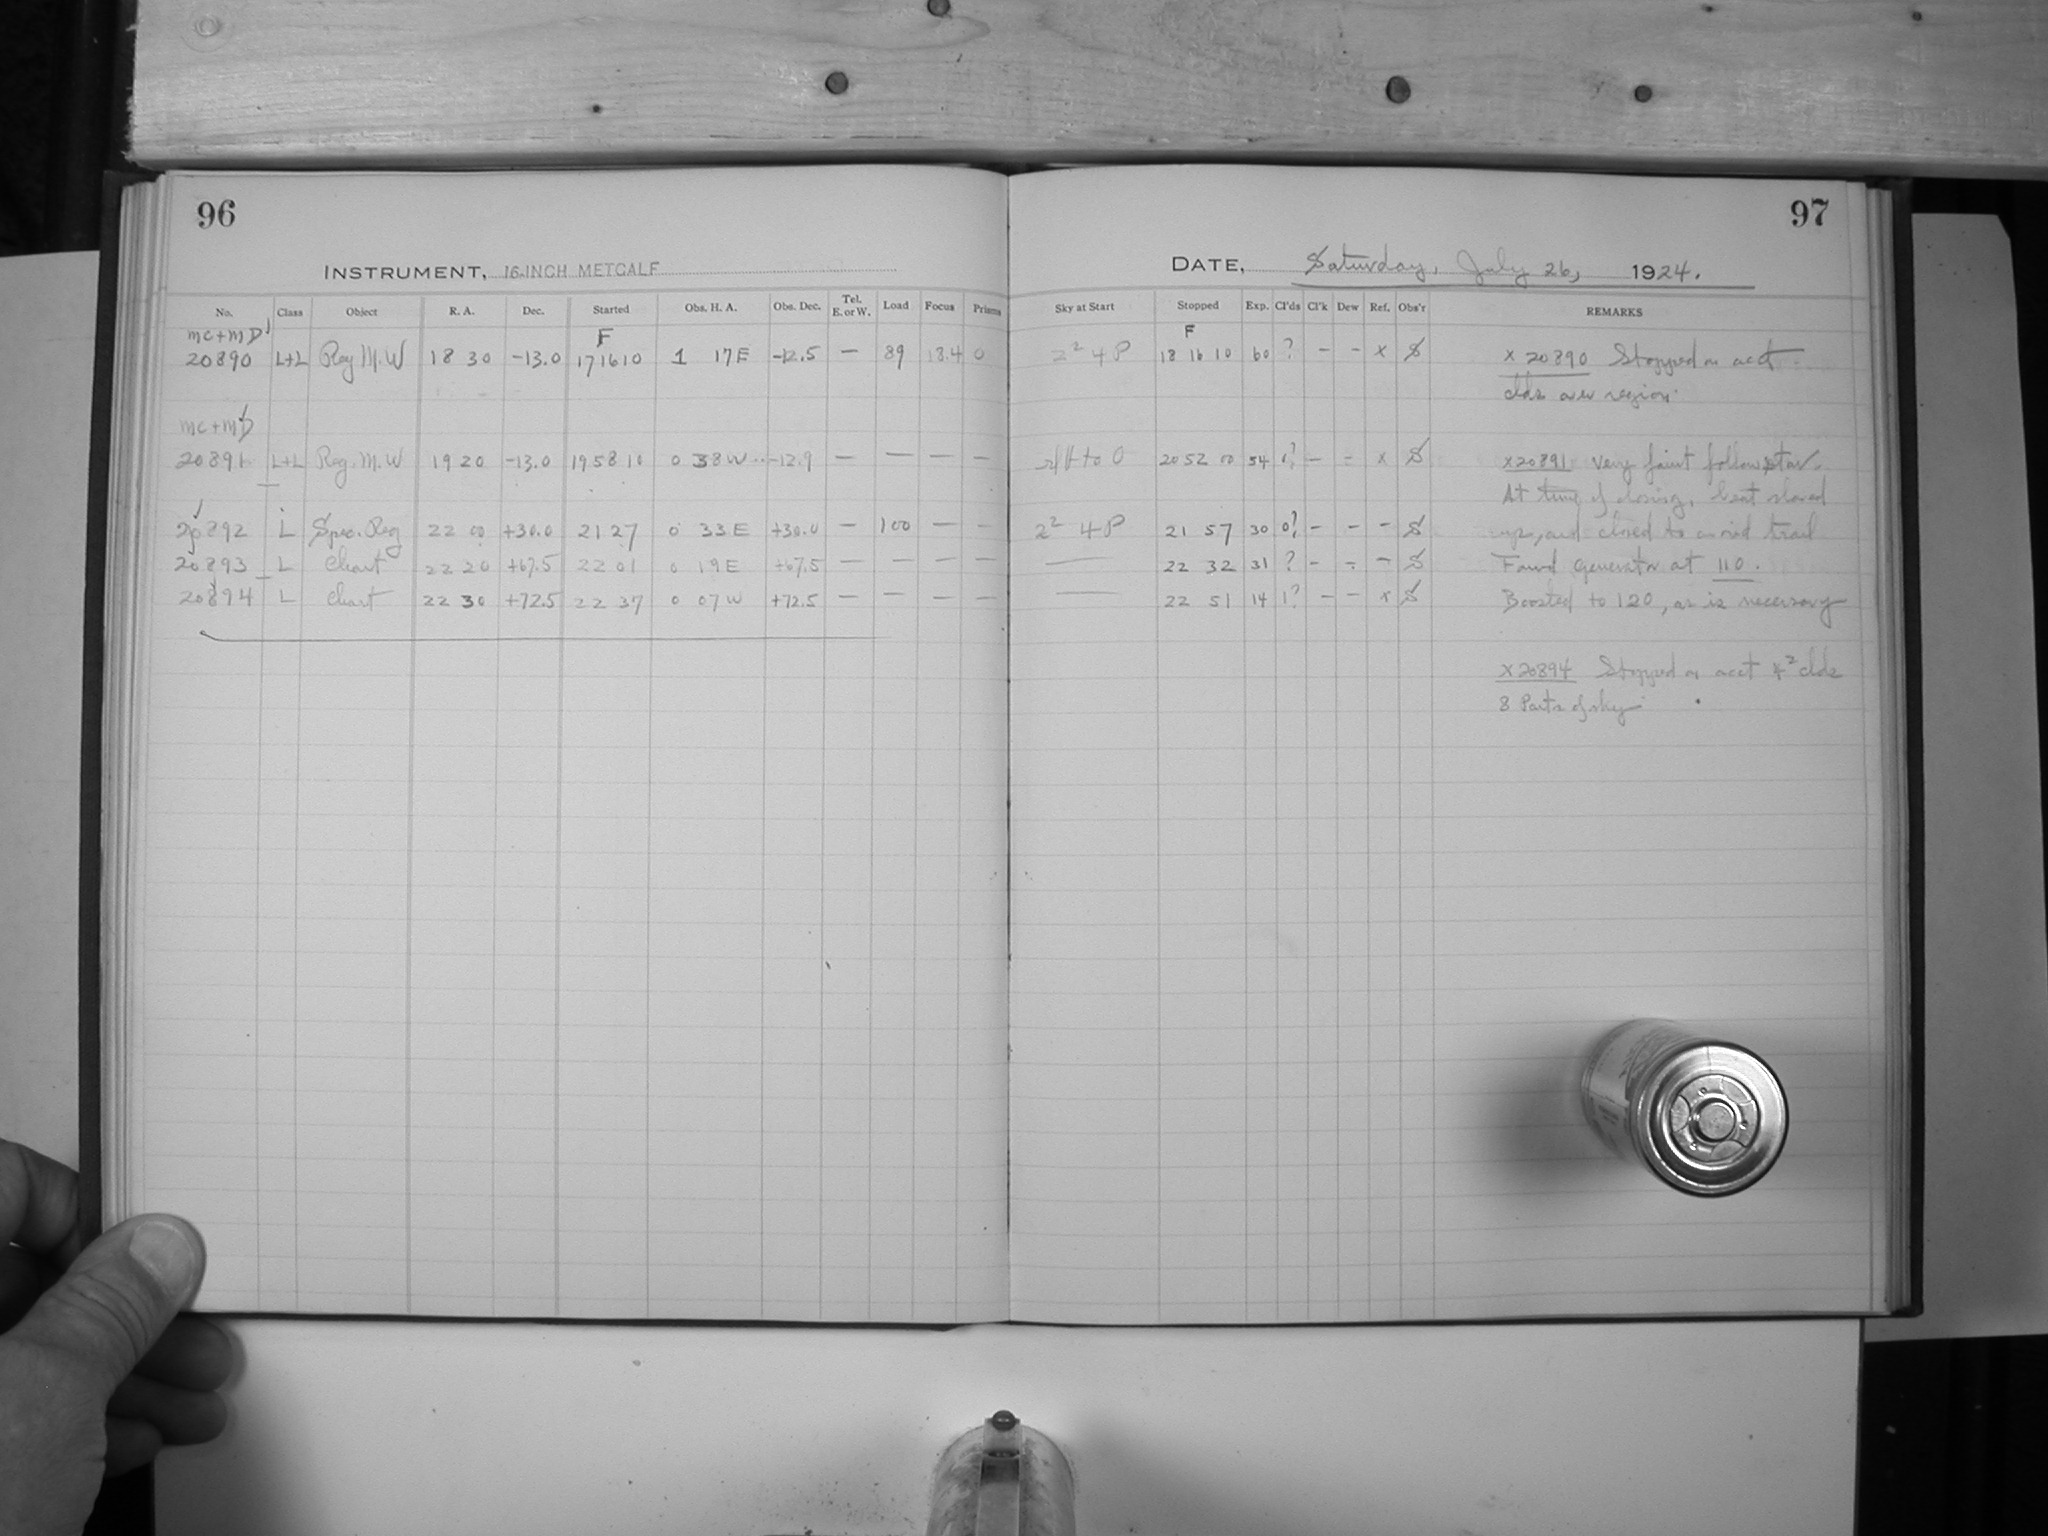 96
INSTRUMENT, 16-INCH METCALF
No. Class Object R. A. Dec. Started Obs. H. A. Obs. Dec. Tel. E. or W. Load Focus Prisms
MC+MD F
20890 L+L Reg M.W 18 30 -13.0 17 16 10 1 17 E -12.5 — 89 13.4 0
MC+MD
20891 L+L Reg. M.W 19 20 -13.0 19 58 10 0 38 W -12.9 — — — —
20892 L Spec. Reg 22 00 +30.0 21 27 0 33 E +30.0 — 100 — —
20893 L Chart 22 20 +67.5 22 01 0 19 E +67.5 — — — —
20894 L Chart 22 30 +72.5 22 37 0 07 W +72.5 — — — —
97
DATE, Saturday, July 26, 1924.
Sky at Start Stopped Exp. Cl'ds Cl'k Dew Ref. Obs'r REMARKS
F
2² 4 P 18 16 10 60 ? – – x S x 20890 Stopped on acct
clds over region.
to 0 20 52 00 54 – – x S x20891 very faint follow star.
At time of closing, beat slowed
2² 4 P 21 57 30 0? – – – S up, and closed to avoid trail
— 22 32 31 ? – – – S Found generator at 110.
— 22 51 14 1? – – x S Boosted to 120, as is necessary
x20894 Stopped on acct clds
8 Parts of sky